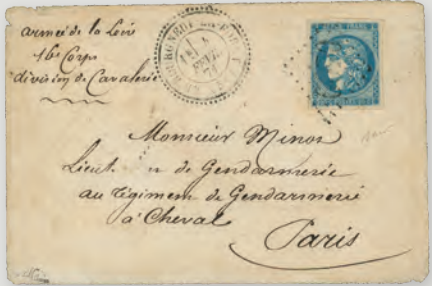 armée de la Loire
16e Corps
division de Cavalerie
Monsieur Minot
Lieut n de Gendarmerie
au régiment de Gendarmerie
à Cheval
Paris